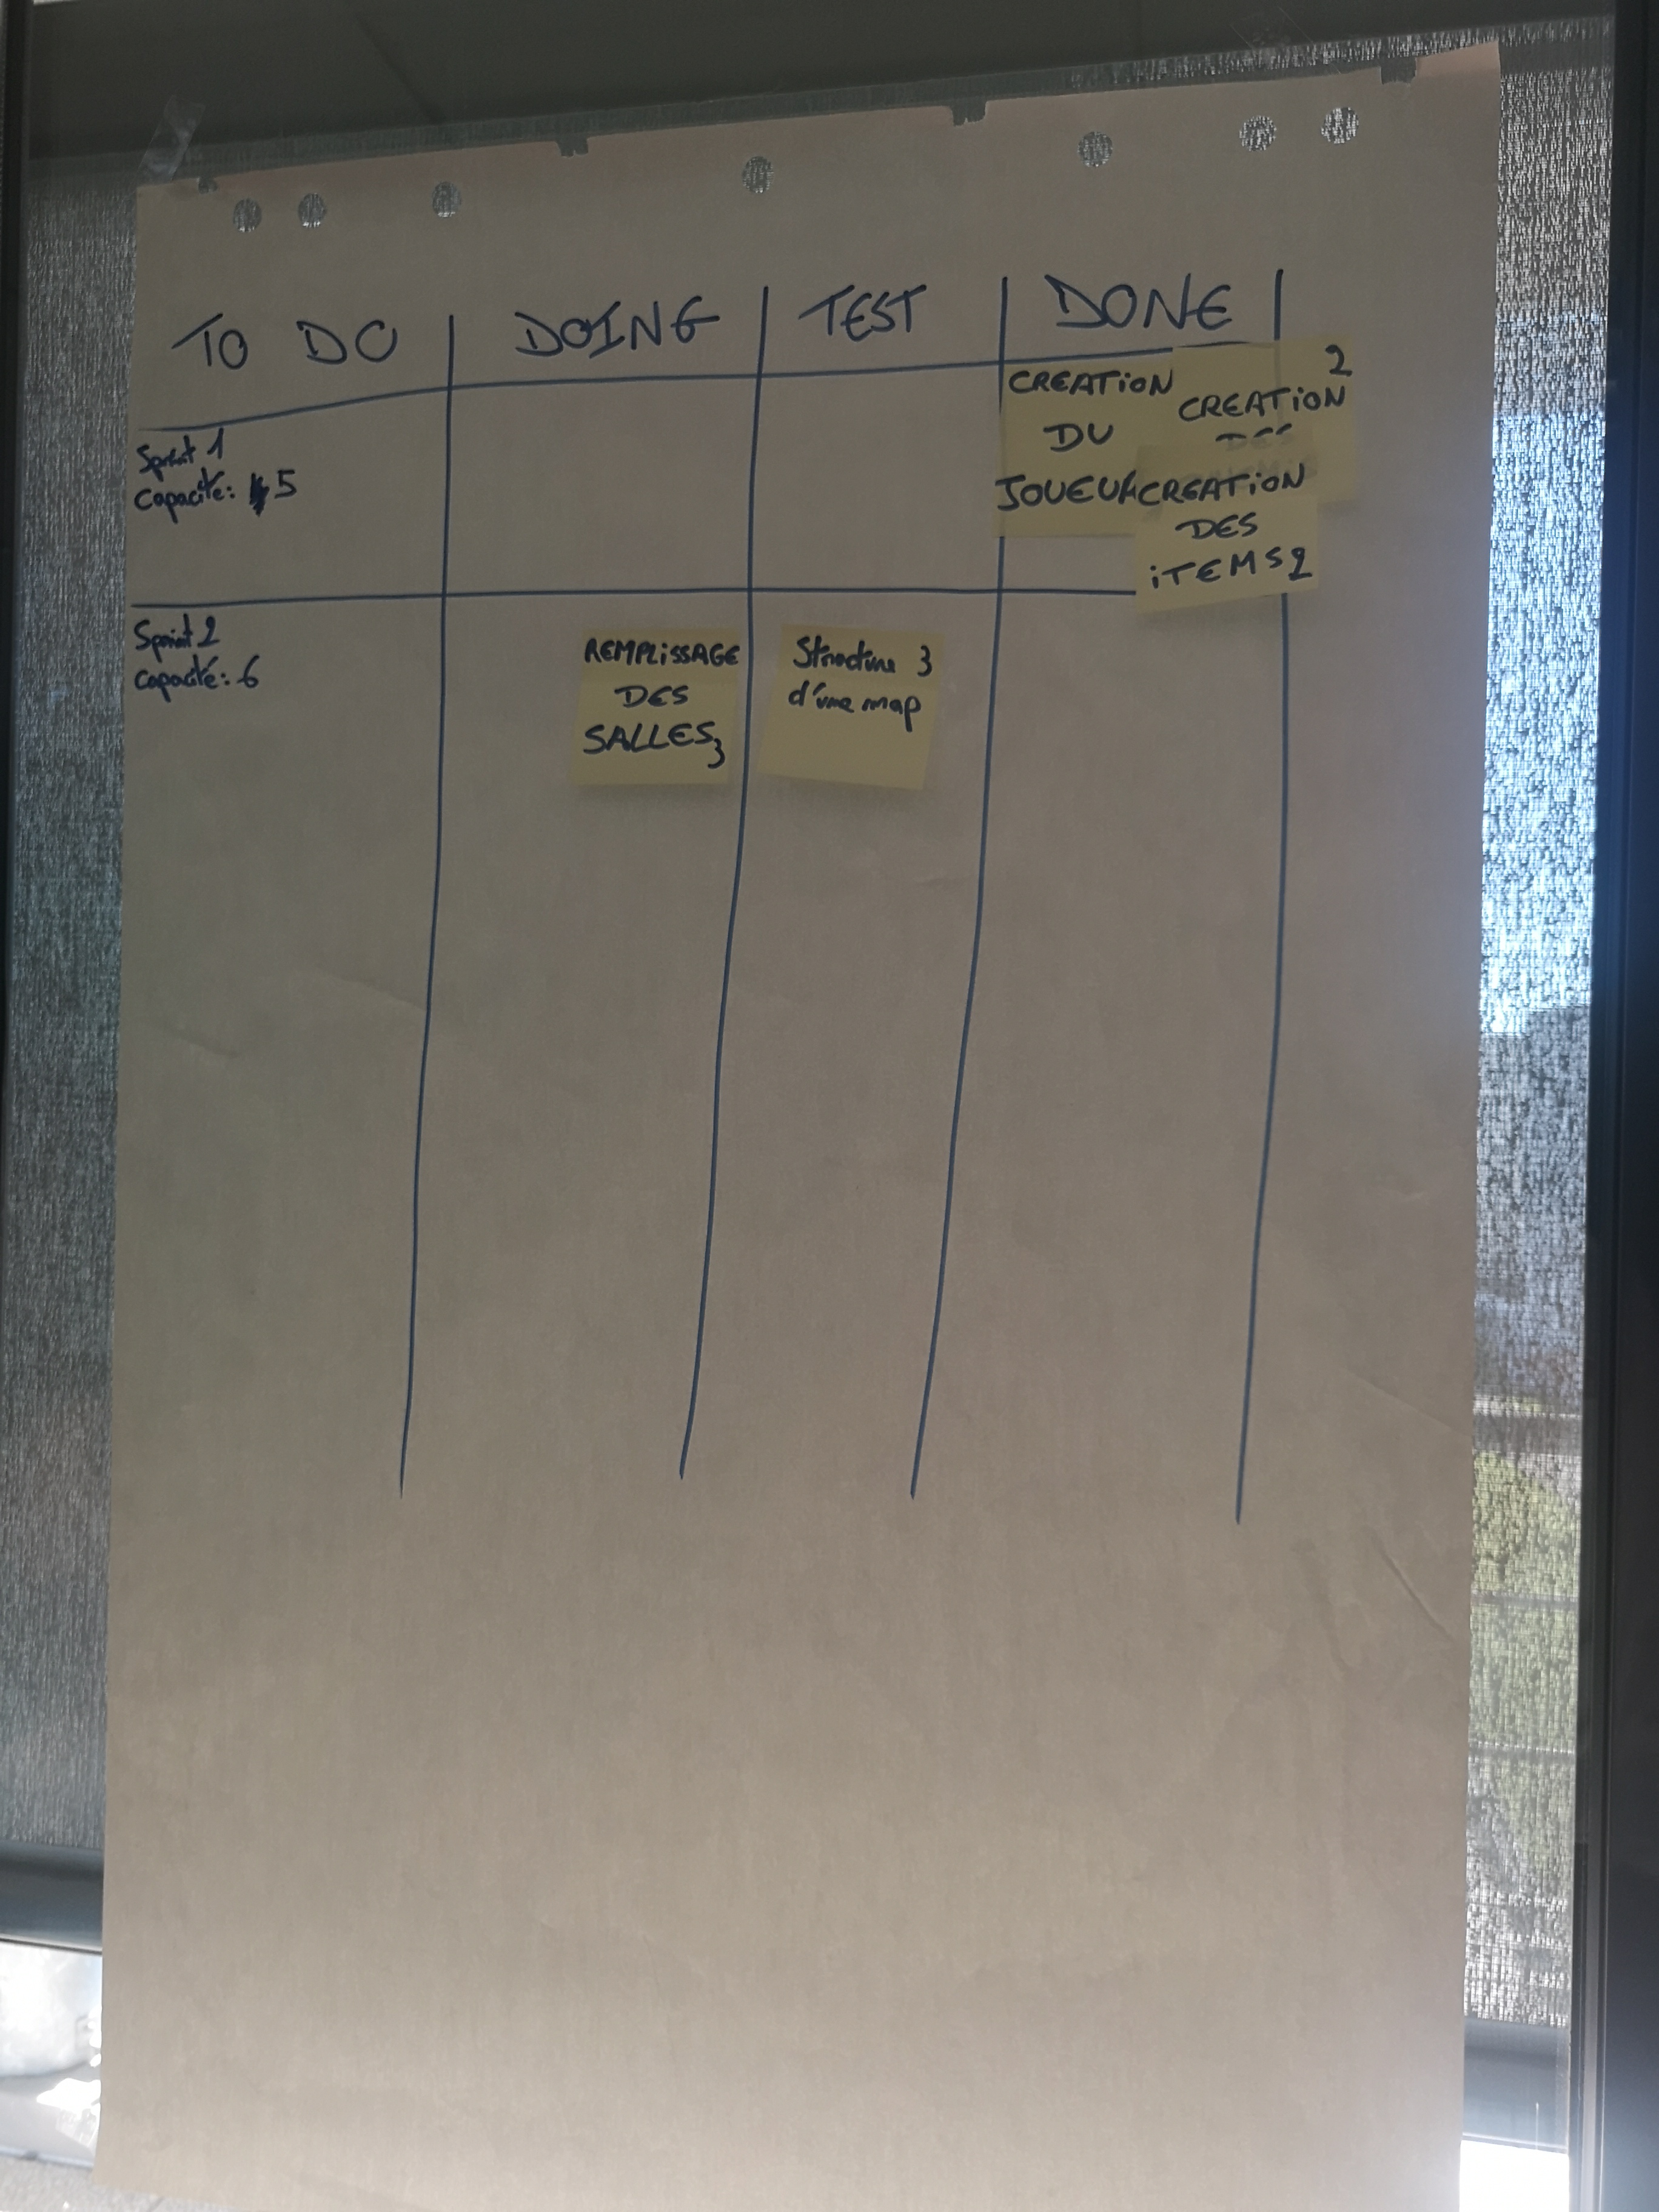 TO DO
DOING
TEST
DONE
Sprint 1
Capacité: 5
CREATION
DU
JOUEUR
2
CREATION
DES
CREATION
DES
iTEMS 2
Sprint 2
Capacité: 6
REMPLiSSAGE
DES
SALLES 3
Structure 3
d'une map